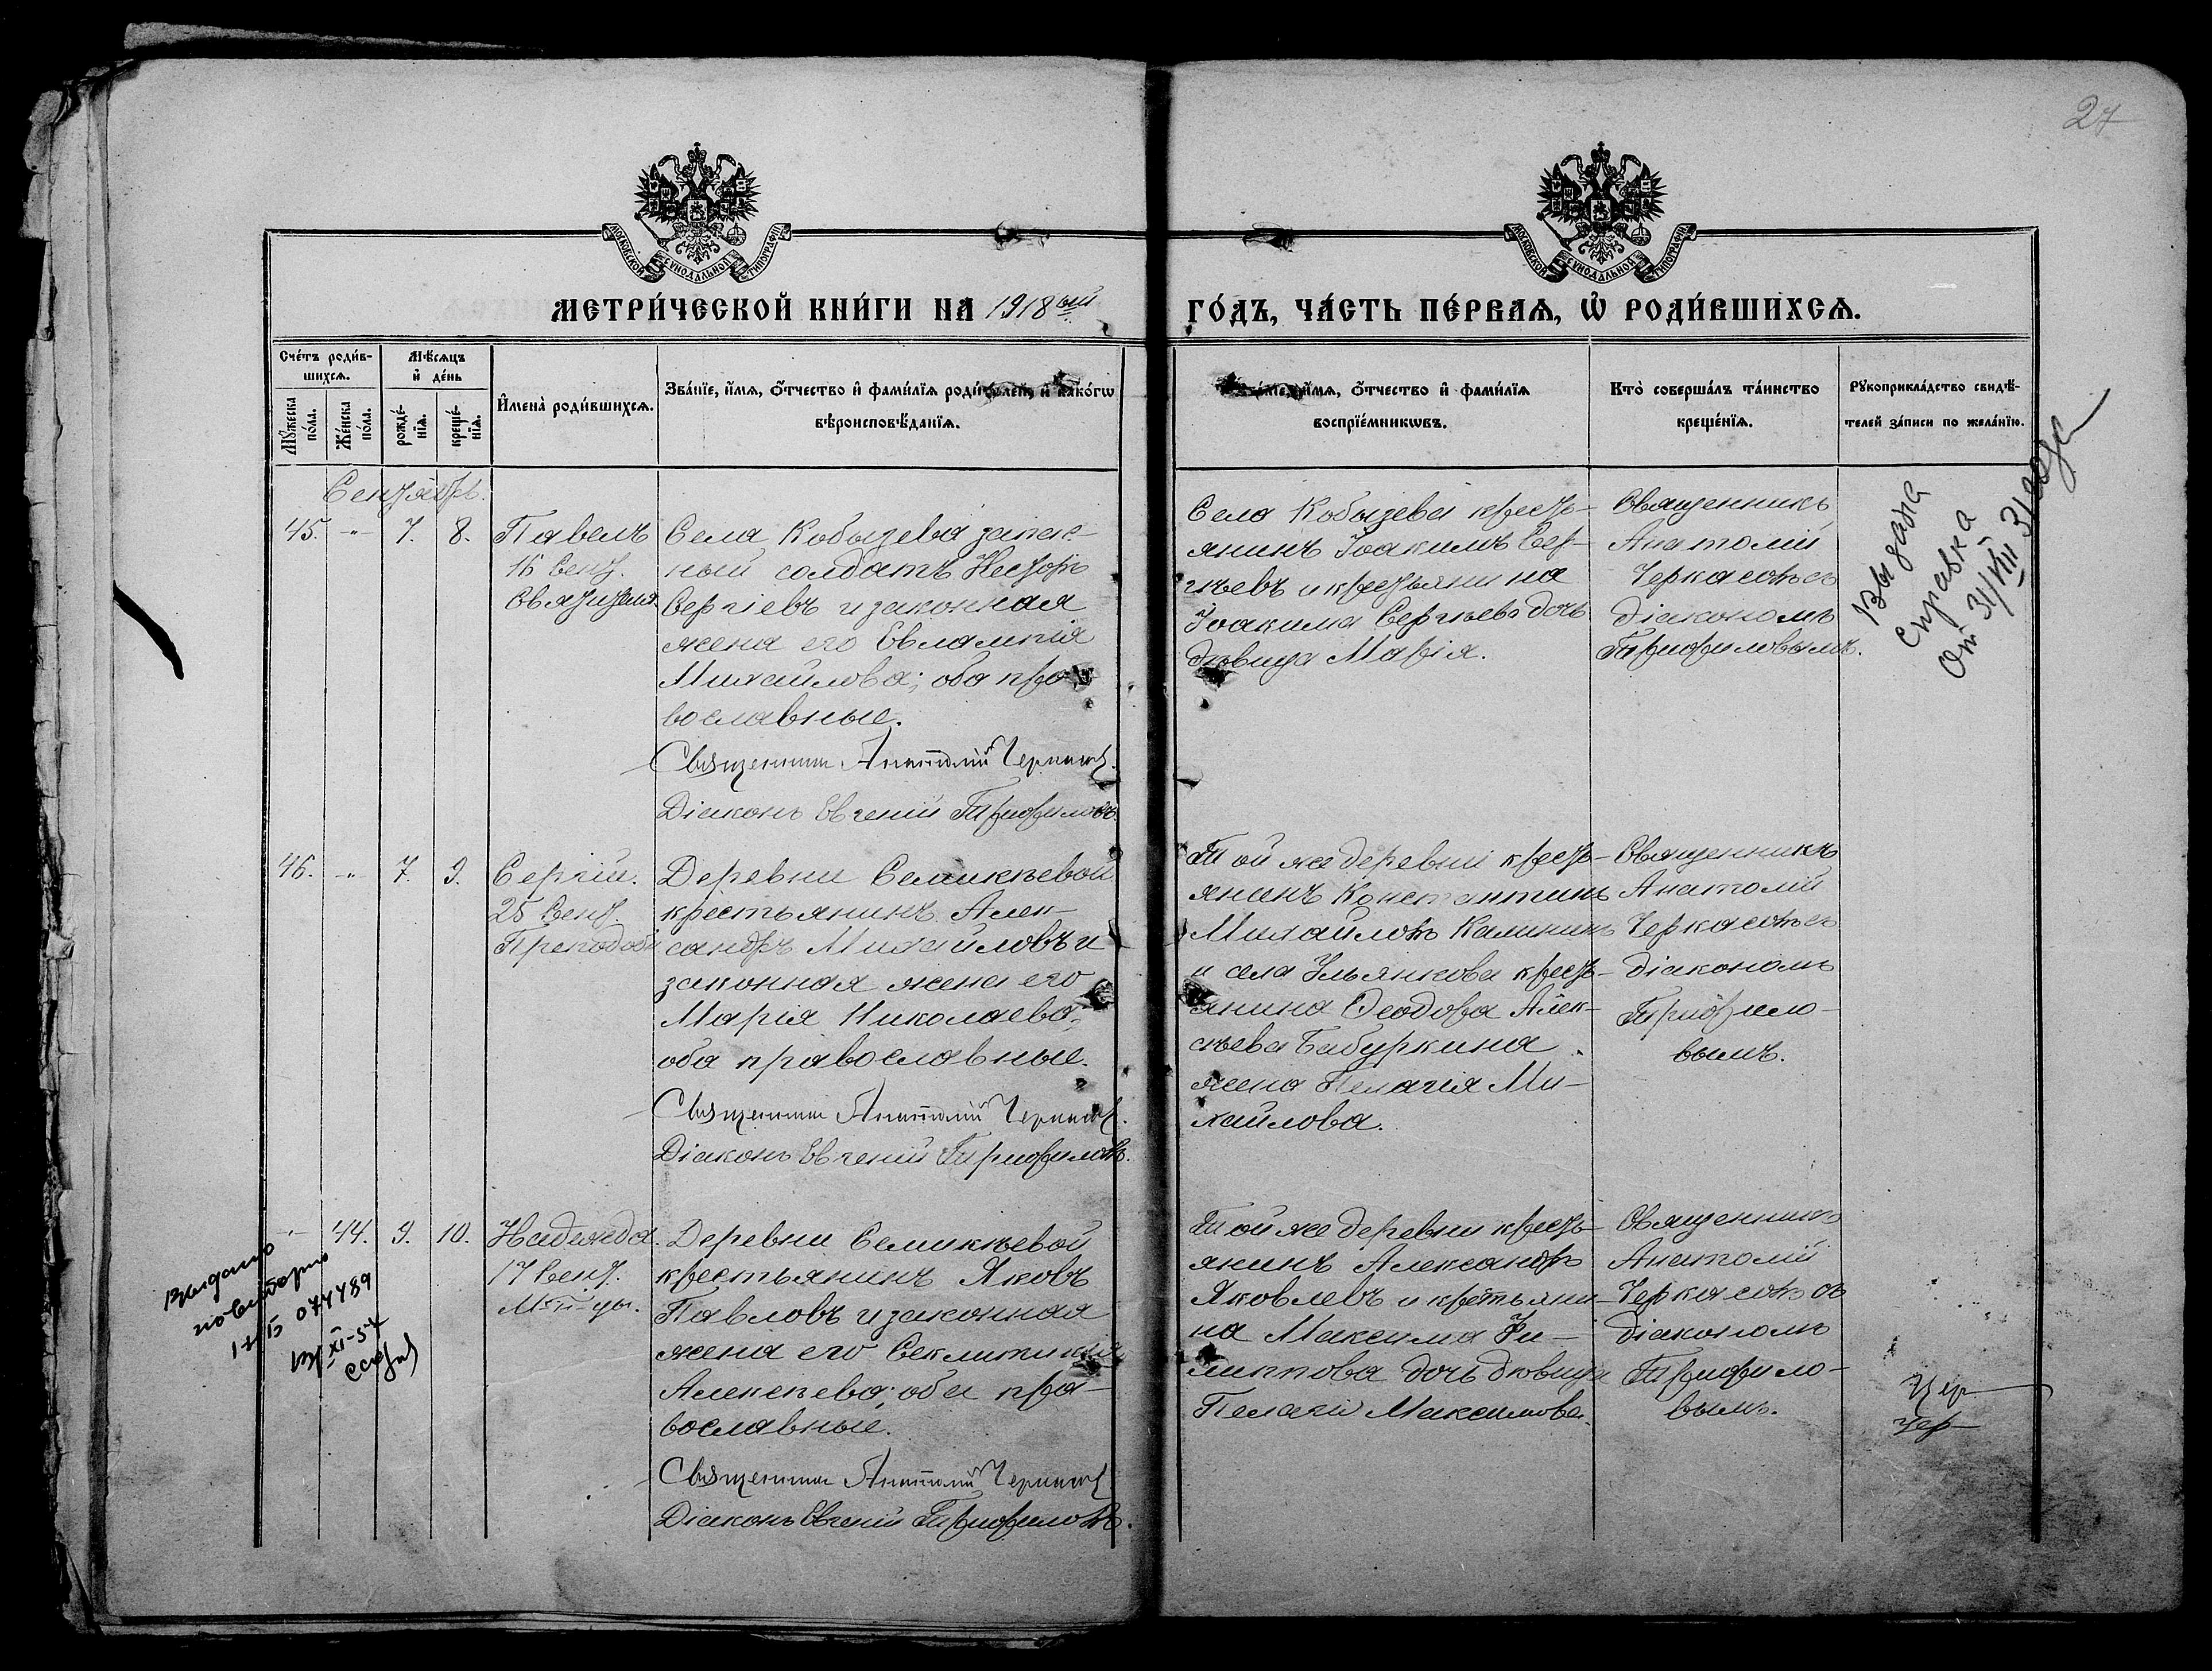 27
МОСКОВСКОЙ СѴНОДАЛЬНОЙ ТИПОГРАФІИ
МОСКОВСКОЙ СѴНОДАЛЬНОЙ ТИПОГРАФІИ
МЕТРИ́ЧЕСКОЙ КНИ́ГИ НА 1918ый
ГО́ДЪ, ЧА́СТЬ ПЕ́РВАѦ, Ѽ РОДИ́ВШИХСѦ.
Сче́тъ роди́в-
шихсѧ.
Мѣ́сѧцъ
и҆ де́нь
Мꙋ́жеска
по́ла.
Же́нска
по́ла.
рожде́-
нїѧ.
креще́-
нїѧ.
И҆мена̀ роди́вшихсѧ.
Зва́нїе, и҆́мѧ, ѻ҆́тчество и҆ фами́лїѧ роди́телей, и҆ како́гѡ
вѣроисповѣ́данїѧ.
и҆́мѧ, ѻ҆́тчество и҆ фами́лїѧ
воспрїе́мникѡвъ.
Кто̀ соверша́лъ та́инство
креще́нїѧ.
Рꙋкоприкла́дство свидѣ́-
телей за́писи по жела́нїю.
Сентябрь.
45. -"- 7. 8.
Павелъ
16 Сент.
Села Кобызева запас-
ный солдатъ Несторъ
Сергіевъ и законная
жена его Евлампія
Михайлова; оба пра-
вославные.
Священник Анатолий Черкасов.
Діаконъ Евгеній Трифиловъ.
Села Кобызева кресть-
янинъ Іоакимъ Сер-
гѣевъ и крестьянина
Іоакима Сергѣева дочь
дѣвица Марія.
Священникъ
Анатолій
Черкасовъ съ
діакономъ
Трифиловымъ.
Выдана
справка
От 31/VIII 31 года
46. -"- 7. 9.
Сергій.
25 Сент.
Преподоб.
Деревни Семикѣевой
крестьянинъ Алек-
сандръ Михайловъ и
законная жена его
Марія Николаева;
оба православные.
Священник Анатолий Черкасов.
Діаконъ Евгеній Трифиловъ.
Той же деревни кресть-
янинъ Константинъ
Михайловъ Калининъ
и села Ульянкова кресть-
янина Ѳеодора Алек-
сѣева Бабуркина
жена Пелагія Ми-
хайлова.
Священникъ
Анатолій
Черкасовъ съ
діакономъ
Трифило-
вымъ.
-"- 44. 9. 10.
Надежда.
17 Сент.
М-цы.
Деревни Семикѣевой
крестьянинъ Яковъ
Павловъ и законная
жена его Секлитикія
Алексѣева; оба пра-
вославные.
Священник Анатолий Черкасов
Діаконъ Евгеній Трифиловъ.
Той же деревни кресть-
янинъ Александръ
Яковлевъ и крестьяни-
на Максима Фи-
липпова дочь дѣвица
Пелагія Максимова.
Священникъ
Анатолій
Черкасовъ съ
діакономъ
Трифило-
вымъ.
Выдано
повторно
074489
XI-57